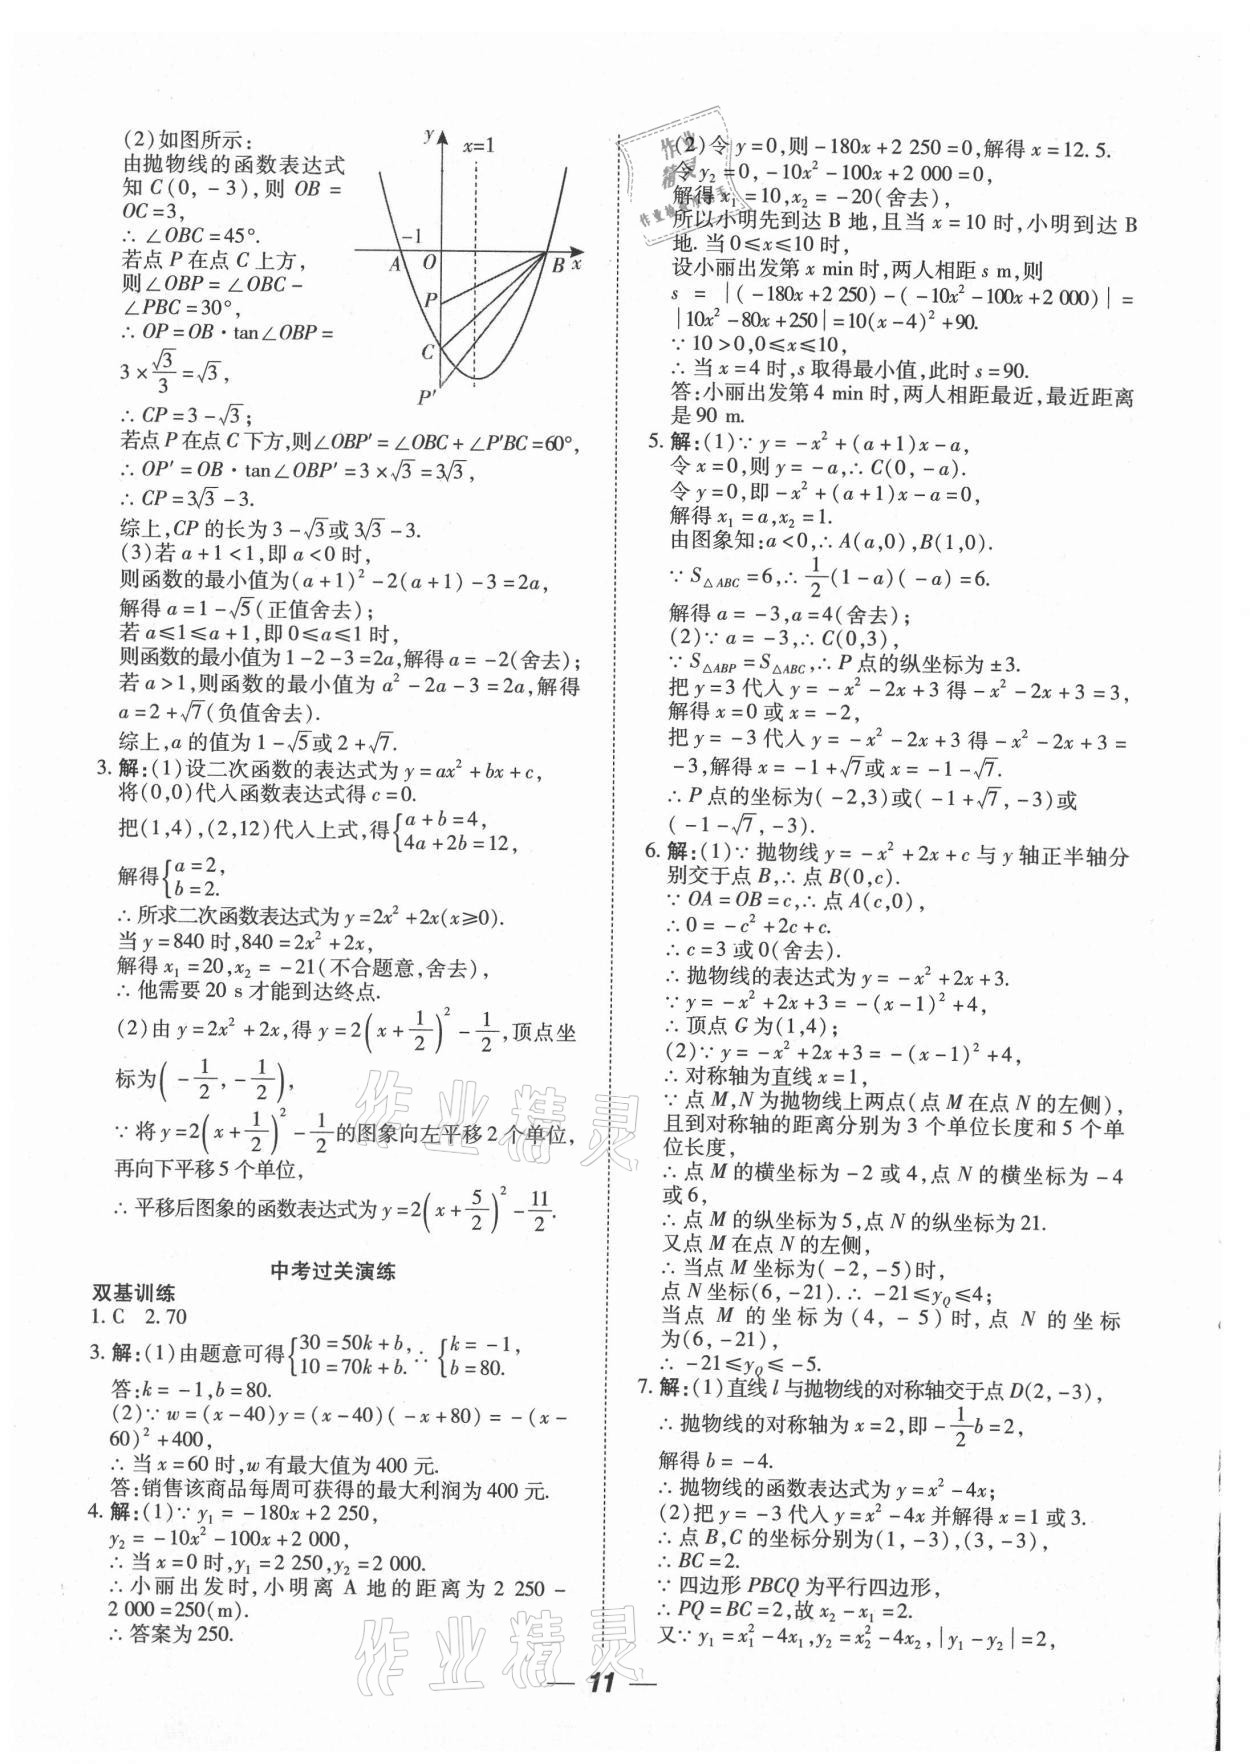 (2)如图所示:
由抛物线的函数表达式
知 C(0, -3),则 OB =
OC=3,
∴ ∠OBC=45°.
若点 P 在点 C 上方,
则∠OBP = ∠OBC -
∠PBC=30°,
∴ OP=OB·tan∠OBP=
3×√3/3=√3,
∴ CP=3-√3;
y
x=1
-1
A
O
B
x
P
C
P′
若点 P 在点 C 下方,则∠OBP′=∠OBC+∠P′BC=60°,
∴ OP′=OB·tan∠OBP′=3×√3=3√3,
∴ CP=3√3-3.
综上,CP 的长为 3-√3或 3√3-3.
(3)若 a+1<1,即 a<0 时,
则函数的最小值为(a+1)²-2(a+1)-3=2a,
解得 a=1-√5(正值舍去);
若 a≤1≤a+1,即 0≤a≤1 时,
则函数的最小值为 1-2-3=2a,解得 a=-2(舍去);
若 a>1,则函数的最小值为 a²-2a-3=2a,解得
a=2+√7(负值舍去).
综上,a 的值为 1-√5或 2+√7.
3. 解:(1)设二次函数的表达式为 y=ax²+bx+c,
将(0,0)代入函数表达式得 c=0.
把(1,4),(2,12)代入上式,得{a+b=4, 4a+2b=12,
解得{a=2, b=2.
∴ 所求二次函数表达式为 y=2x²+2x(x≥0).
当 y=840 时,840=2x²+2x,
解得 x₁=20,x₂=-21(不合题意,舍去),
∴ 他需要 20 s 才能到达终点.
(2)由 y=2x²+2x,得 y=2(x+1/2)²-1/2,顶点坐
标为(-1/2,-1/2),
∵ 将 y=2(x+1/2)²-1/2的图象向左平移 2 个单位,
再向下平移 5 个单位,
∴ 平移后图象的函数表达式为 y=2(x+5/2)²-11/2.
中考过关演练
双基训练
1. C 2. 70
3. 解:(1)由题意可得{30=50k+b, 10=70k+b. ∴ {k=-1, b=80.
答:k=-1,b=80.
(2)∵ w=(x-40)y=(x-40)(-x+80)=-(x-
60)²+400,
∴ 当 x=60 时,w 有最大值为 400 元.
答:销售该商品每周可获得的最大利润为 400 元.
4. 解:(1)∵ y₁=-180x+2 250,
y₂=-10x²-100x+2 000,
∴ 当 x=0 时,y₁=2 250,y₂=2 000.
∴ 小丽出发时,小明离 A 地的距离为 2 250-
2 000=250(m).
∴ 答案为 250.
(2)令 y=0,则-180x+2 250=0,解得 x=12.5.
令 y₂=0,-10x²-100x+2 000=0,
解得 x₁=10,x₂=-20(舍去),
所以小明先到达 B 地,且当 x=10 时,小明到达 B
地. 当 0≤x≤10 时,
设小丽出发第 x min 时,两人相距 s m,则
s = |(-180x+2 250)-(-10x²-100x+2 000)| =
|10x²-80x+250|=10(x-4)²+90.
∵ 10>0,0≤x≤10,
∴ 当 x=4 时,s 取得最小值,此时 s=90.
答:小丽出发第 4 min 时,两人相距最近,最近距离
是 90 m.
5. 解:(1)∵ y=-x²+(a+1)x-a,
令 x=0,则 y=-a,∴ C(0,-a).
令 y=0,即-x²+(a+1)x-a=0,
解得 x₁=a,x₂=1.
由图象知:a<0,∴ A(a,0),B(1,0).
∵ S△ABC=6,∴ 1/2(1-a)(-a)=6.
解得 a=-3,a=4(舍去);
(2)∵ a=-3,∴ C(0,3),
∵ S△ABP=S△ABC,∴ P 点的纵坐标为±3.
把 y=3 代入 y=-x²-2x+3 得-x²-2x+3=3,
解得 x=0 或 x=-2,
把 y=-3 代入 y=-x²-2x+3 得-x²-2x+3=
-3,解得 x=-1+√7或 x=-1-√7.
∴ P 点的坐标为(-2,3)或(-1+√7,-3)或
(-1-√7,-3).
6. 解:(1)∵ 抛物线 y=-x²+2x+c 与 y 轴正半轴分
别交于点 B,∴ 点 B(0,c).
∵ OA=OB=c,∴ 点 A(c,0),
∴ 0=-c²+2c+c.
∴ c=3 或 0(舍去).
∴ 抛物线的表达式为 y=-x²+2x+3.
∵ y=-x²+2x+3=-(x-1)²+4,
∴ 顶点 G 为(1,4);
(2)∵ y=-x²+2x+3=-(x-1)²+4,
∴ 对称轴为直线 x=1,
∵ 点 M,N 为抛物线上两点(点 M 在点 N 的左侧),
且到对称轴的距离分别为 3 个单位长度和 5 个单
位长度,
∴ 点 M 的横坐标为-2 或 4,点 N 的横坐标为-4
或 6,
∴ 点 M 的纵坐标为 5,点 N 的纵坐标为 21.
又点 M 在点 N 的左侧,
∴ 当点 M 坐标为(-2,-5)时,
点 N 坐标(6,-21).∴ -21≤yQ≤4;
当点 M 的坐标为(4,-5)时,点 N 的坐标
为(6,-21),
∴ -21≤yQ≤-5.
7. 解:(1)直线 l 与抛物线的对称轴交于点 D(2,-3),
∴ 抛物线的对称轴为 x=2,即-1/2b=2,
解得 b=-4.
∴ 抛物线的函数表达式为 y=x²-4x;
(2)把 y=-3 代入 y=x²-4x 并解得 x=1 或 3.
∴ 点 B,C 的坐标分别为(1,-3),(3,-3),
∴ BC=2.
∵ 四边形 PBCQ 为平行四边形,
∴ PQ=BC=2,故 x₂-x₁=2.
又∵ y₁=x₁²-4x₁,y₂=x₂²-4x₂,|y₁-y₂|=2,
— 11 —
作业精灵
作业精灵
作业
精灵